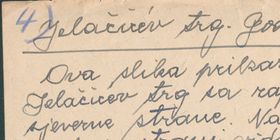 4) Jelačićev trg. God
Ova slika prikaz
Jelačićev trg sa
sjeverne strane. Na